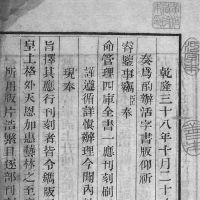 乾隆三十八年十月二十
奏爲酌辦活字書版仰祈
睿鑒事竊臣奉
命管理四庫全書一應刊刻刷
詳遵循詳慎辦理今聞內
現奉
旨擇其應行刊刻者皆令鐫版
皇上格外天恩加惠藝林之至
所用版片浩繁且逐部刊刻